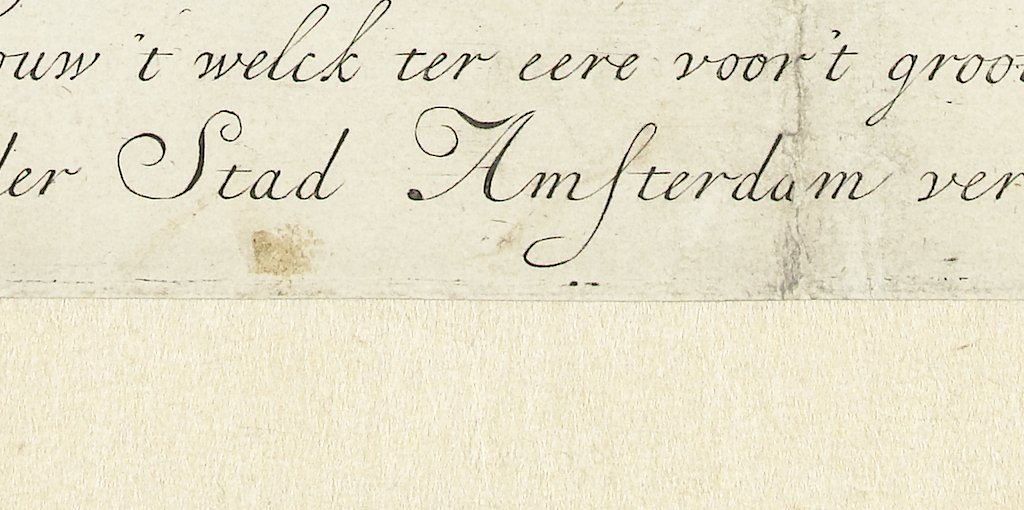 ouw 't welck ter eere voor 't groot
der Stad Amſterdam ver